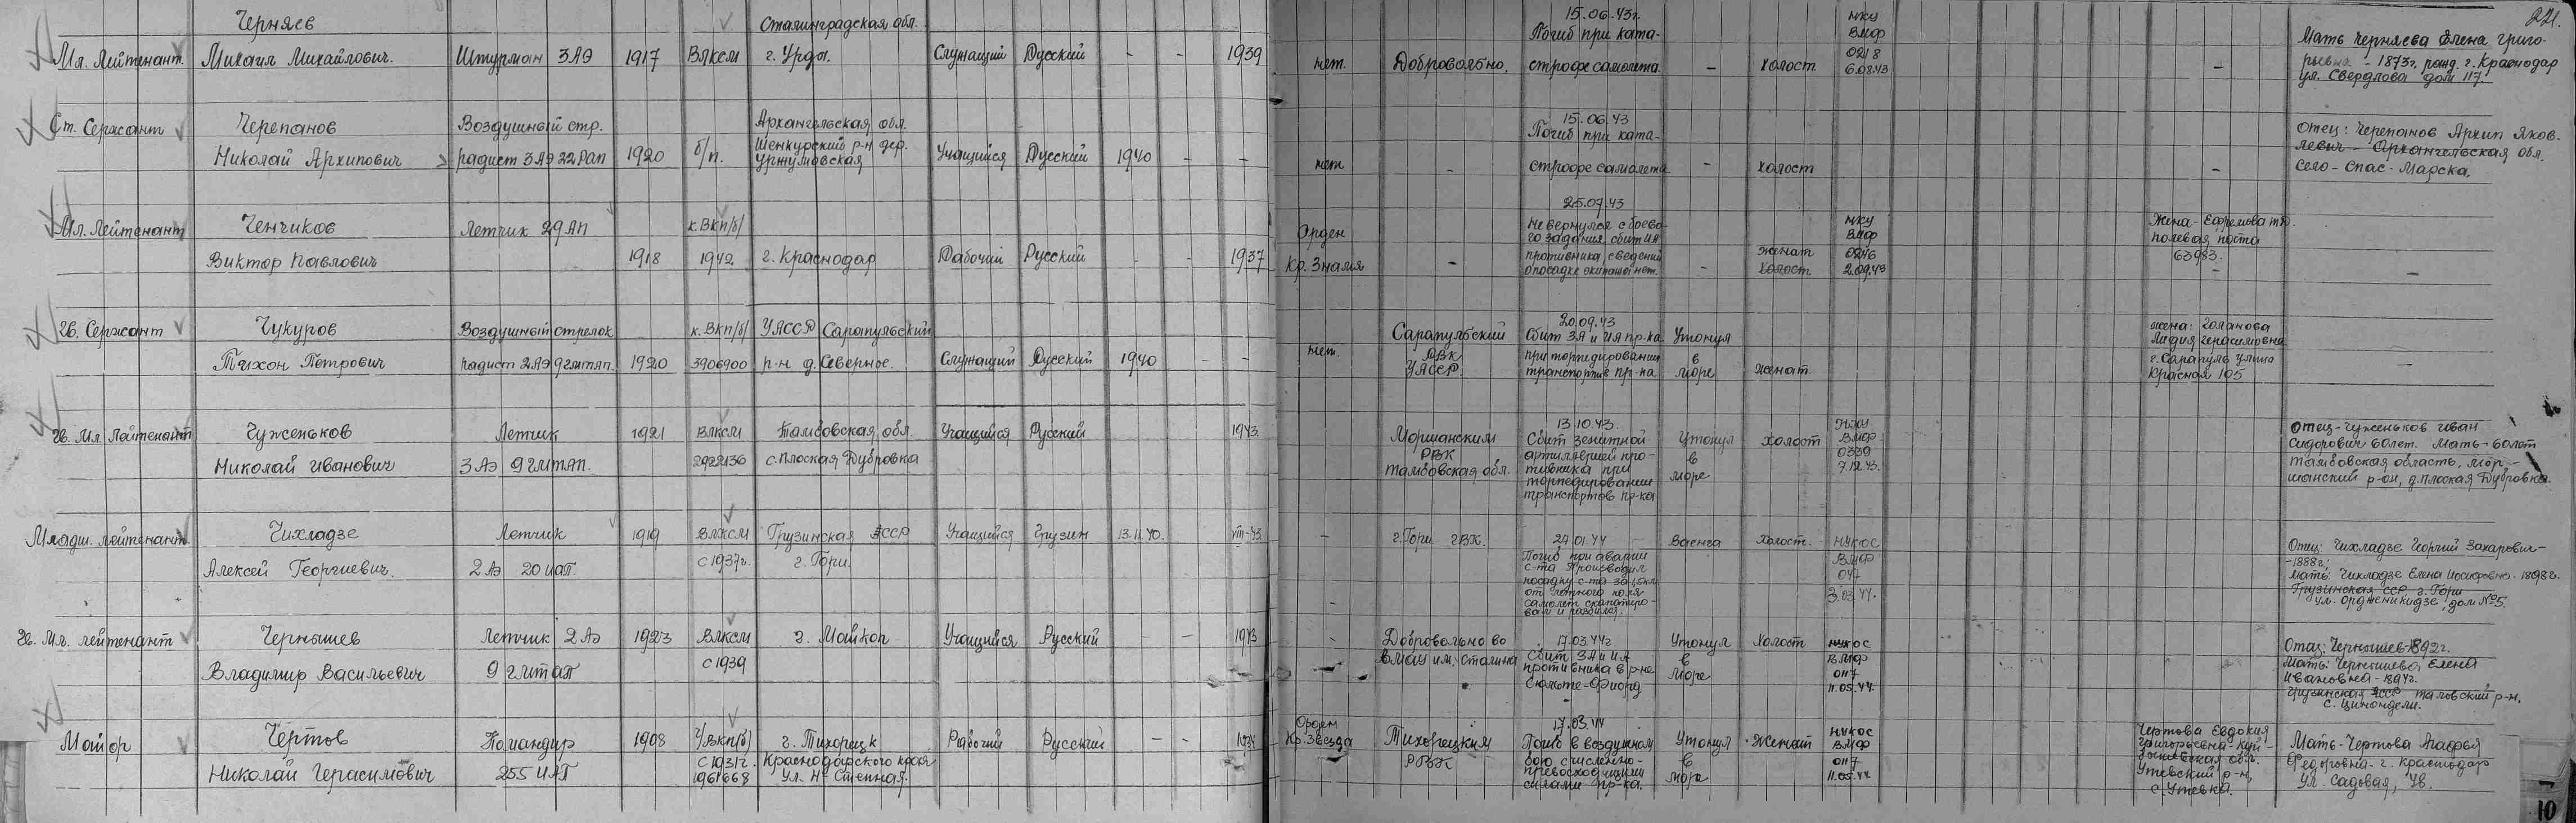 221.
Черняев
Мл. Лейтенант. Михаил Михайлович. Штурман 3АЭ 1917 ВЛКСМ Сталинградская обл. г. Урды. Служащий Русский - - 1939
нет. Добровольно. 15.06.43г. Погиб при ката-
строфе самолета. - холост НКУ ВМФ 0218 6.08.43 -
Мать Черняева Елена Григо-
рьевна - 1873г. рожд. г. Краснодар
ул. Свердлова дом 117.
Ст. Сержант Черепанов Воздушный стр. Архангельская обл.
Николай Архипович радист 3АЭ 22РАП 1920 б/п. Шенкурский р-н дер. Уржумовская Учащийся Русский 1940 - -
нет - 15.06.43 Погиб при ката-
строфе самолета - холост -
Отец: Черепанов Архип Яков-
левич - Архангельская обл.
село - Спас - Марска.
Мл. Лейтенант Ченчиков Летчик 29АП к.ВКП/б/
Виктор Павлович 1918 1942 г. Краснодар Рабочий Русский - - 1937
Орден
Кр. Знамя - 25.07.43
Не вернулся с боево-
го задания, сбит ИА
противника, сведений
о посадке экипажа нет. - женат холост НКУ ВМФ 0246 2.09.43
Жена - Ефремова
полевая почта
63983.
-
Гв. Сержант Чукуров Воздушный стрелок к.ВКП/б/ УАССР Сарапульский
Тихон Петрович радист 2АЭ 9гмтап. 1920 3906900 р-н д. Северное. Служащий Русский 1940 - -
нет. Сарапульский
РВК
УАССР. 20.09.43
Сбит ЗА и ИА пр-ка
при торпедировании
транспортов пр-ка Утонул
в
море женат
жена: Голанова
Лидия Герасимовна
г. Сарапул улица
Красная 105 -
Гв. Мл. Лейтенант Чуженьков Летчик 1921 ВЛКСМ Тамбовская обл. Учащийся Русский 1943.
Николай Иванович 3АЭ 9ГМТАП. 2922136 с. Плоская Дубровка
Моршанским
РВК
Тамбовская обл. 13.10.43.
Сбит зенитной
артиллерией про-
тивника при
торпедировании
транспортов пр-ка Утонул
в
море холост ВМФ
0339
7.12.43.
Отец - Чуженьков Иван
Сидорович 60лет. Мать - 60лет
Тамбовская область, Мор-
шанский р-он, д. Плоская Дубровка.
Младш. лейтенант Чихладзе Летчик 1919 ВЛКСМ Грузинская ССР Учащийся Грузин 13.11.40. VIII-43.
Алексей Георгиевич. 2АЭ 20ИАП. с 1937г. г. Гори.
- г. Гори ГВК. 24.01.44
Погиб при аварии
с-та. Производил
посадку с-та за 1,5км
от летного поля
самолет скапотиро-
вал и разбился. Ваенга Холост. НУКОС
ВМФ
047
3.03.44.
Отец: Чихладзе Георгий Захарович -
- 1888г.;
Мать: Чихладзе Елена Иосифовна - 1898г.
Грузинская ССР г. Гори
ул. Орджоникидзе, дом №5.
Гв. Мл. лейтенант Чернышев Летчик 2АЭ 1923 ВЛКСМ г. Майкоп Учащийся Русский - - 1943
Владимир Васильевич 9ГМТАП с 1939
- Добровольно во
ВМАУ им. Сталина 17.03.44г.
Сбит ЗА и ИА
противника в р-не
Сюльте-Фиорд Утонул
в
Море Холост НУКОС
ВМФ
0117
11.05.44.
Отец: Чернышев-1892г.
Мать: Чернышева Елена
Ивановна - 1894г.
Грузинская ССР р-н.
с. Цинондели.
Майор Чертов Командир 1908 ВКП(б) г. Тихорецк Рабочий Русский - - 1934
Николай Герасимович 255ИАП с 1931г. 1961668 Краснодарского края
Орден
Кр. Звезда Тихорецким
РВК 17.03.44
Погиб в воздушном
бою с численно-
превосходящими
силами пр-ка. Утонул
в
море Женат НУКОС
ВМФ
0117
11.05.44
Чертова Евдокия
Григорьевна - Куй-
бышевская обл.
Утевский р-н,
с. Утевка.
Мать - Чертова Агафья
Федоровна - г. Краснодар
ул. Садовая, 78.
10